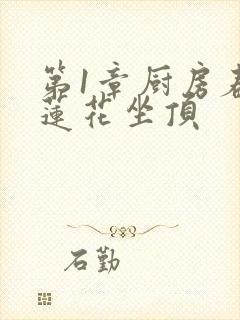 第1章厨房
蓮花坐頂
石勤